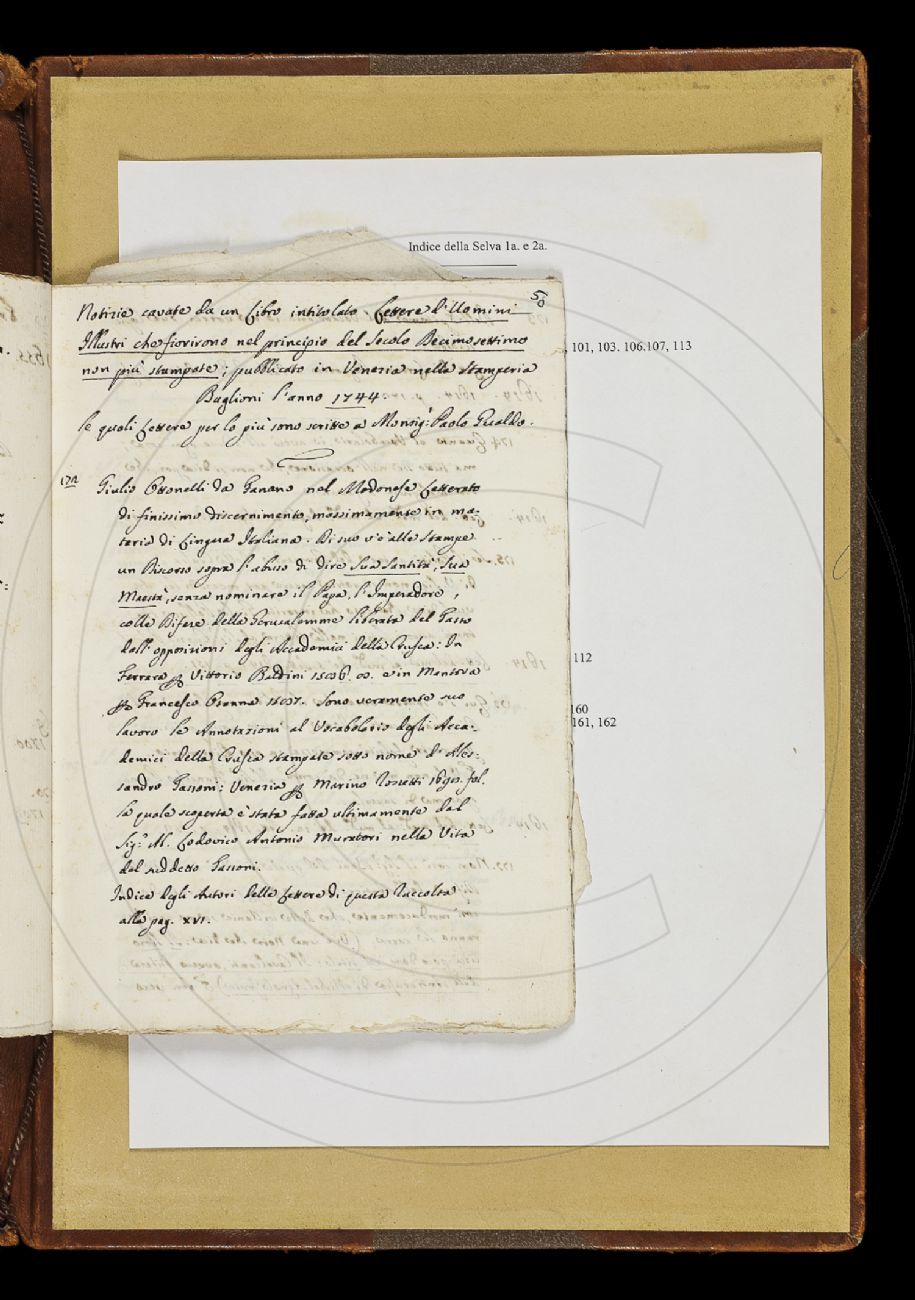 Indice della Selva 1a. e 2a.
50
Notizie cavate da un Libro intitolato Lettere d'Uomini
Illustri che fiorirono nel principio del Secolo Decimosettimo
non più stampate; pubblicato in Venezia nella Stamperia
Baglioni l'anno 1744
le quali Lettere per lo più sono scritte a Monsig.r Paolo Gualdo.
101, 103. 106.107, 113
Giulio Ottonelli da Fanano nel Modonese Letterato
di finissimo discernimento, massimamente in ma-
teria di Lingua Italiana. Di suo v'è alle stampe
un Discorso sopra l'abuso di dire Sua Santità, Sua
Maestà, senza nominare il Papa, l'Imperadore,
colle Difese della Gerusalemme liberata del Tasso
dall' opposizioni degli Accademici della Crusca: In
Ferrara per Vittorio Baldini 1586. 8. e in Mantova
per Francesco Osanna 1587. Sono veramente suo
lavoro le Annotazioni al Vocabolario degli Acca-
demici della Crusca stampate sotto nome d'Ales-
sandro Tassoni: Venezia per Marino Rossetti 1698. fol.
la quale scoperta è stata fatta ultimamente dal
Sig.r M. Lodovico Antonio Muratori nella Vita
del suddetto Tassoni.
Indice degli Autori delle Lettere di questa Raccolta
alla pag. XVI.
112
160
161, 162